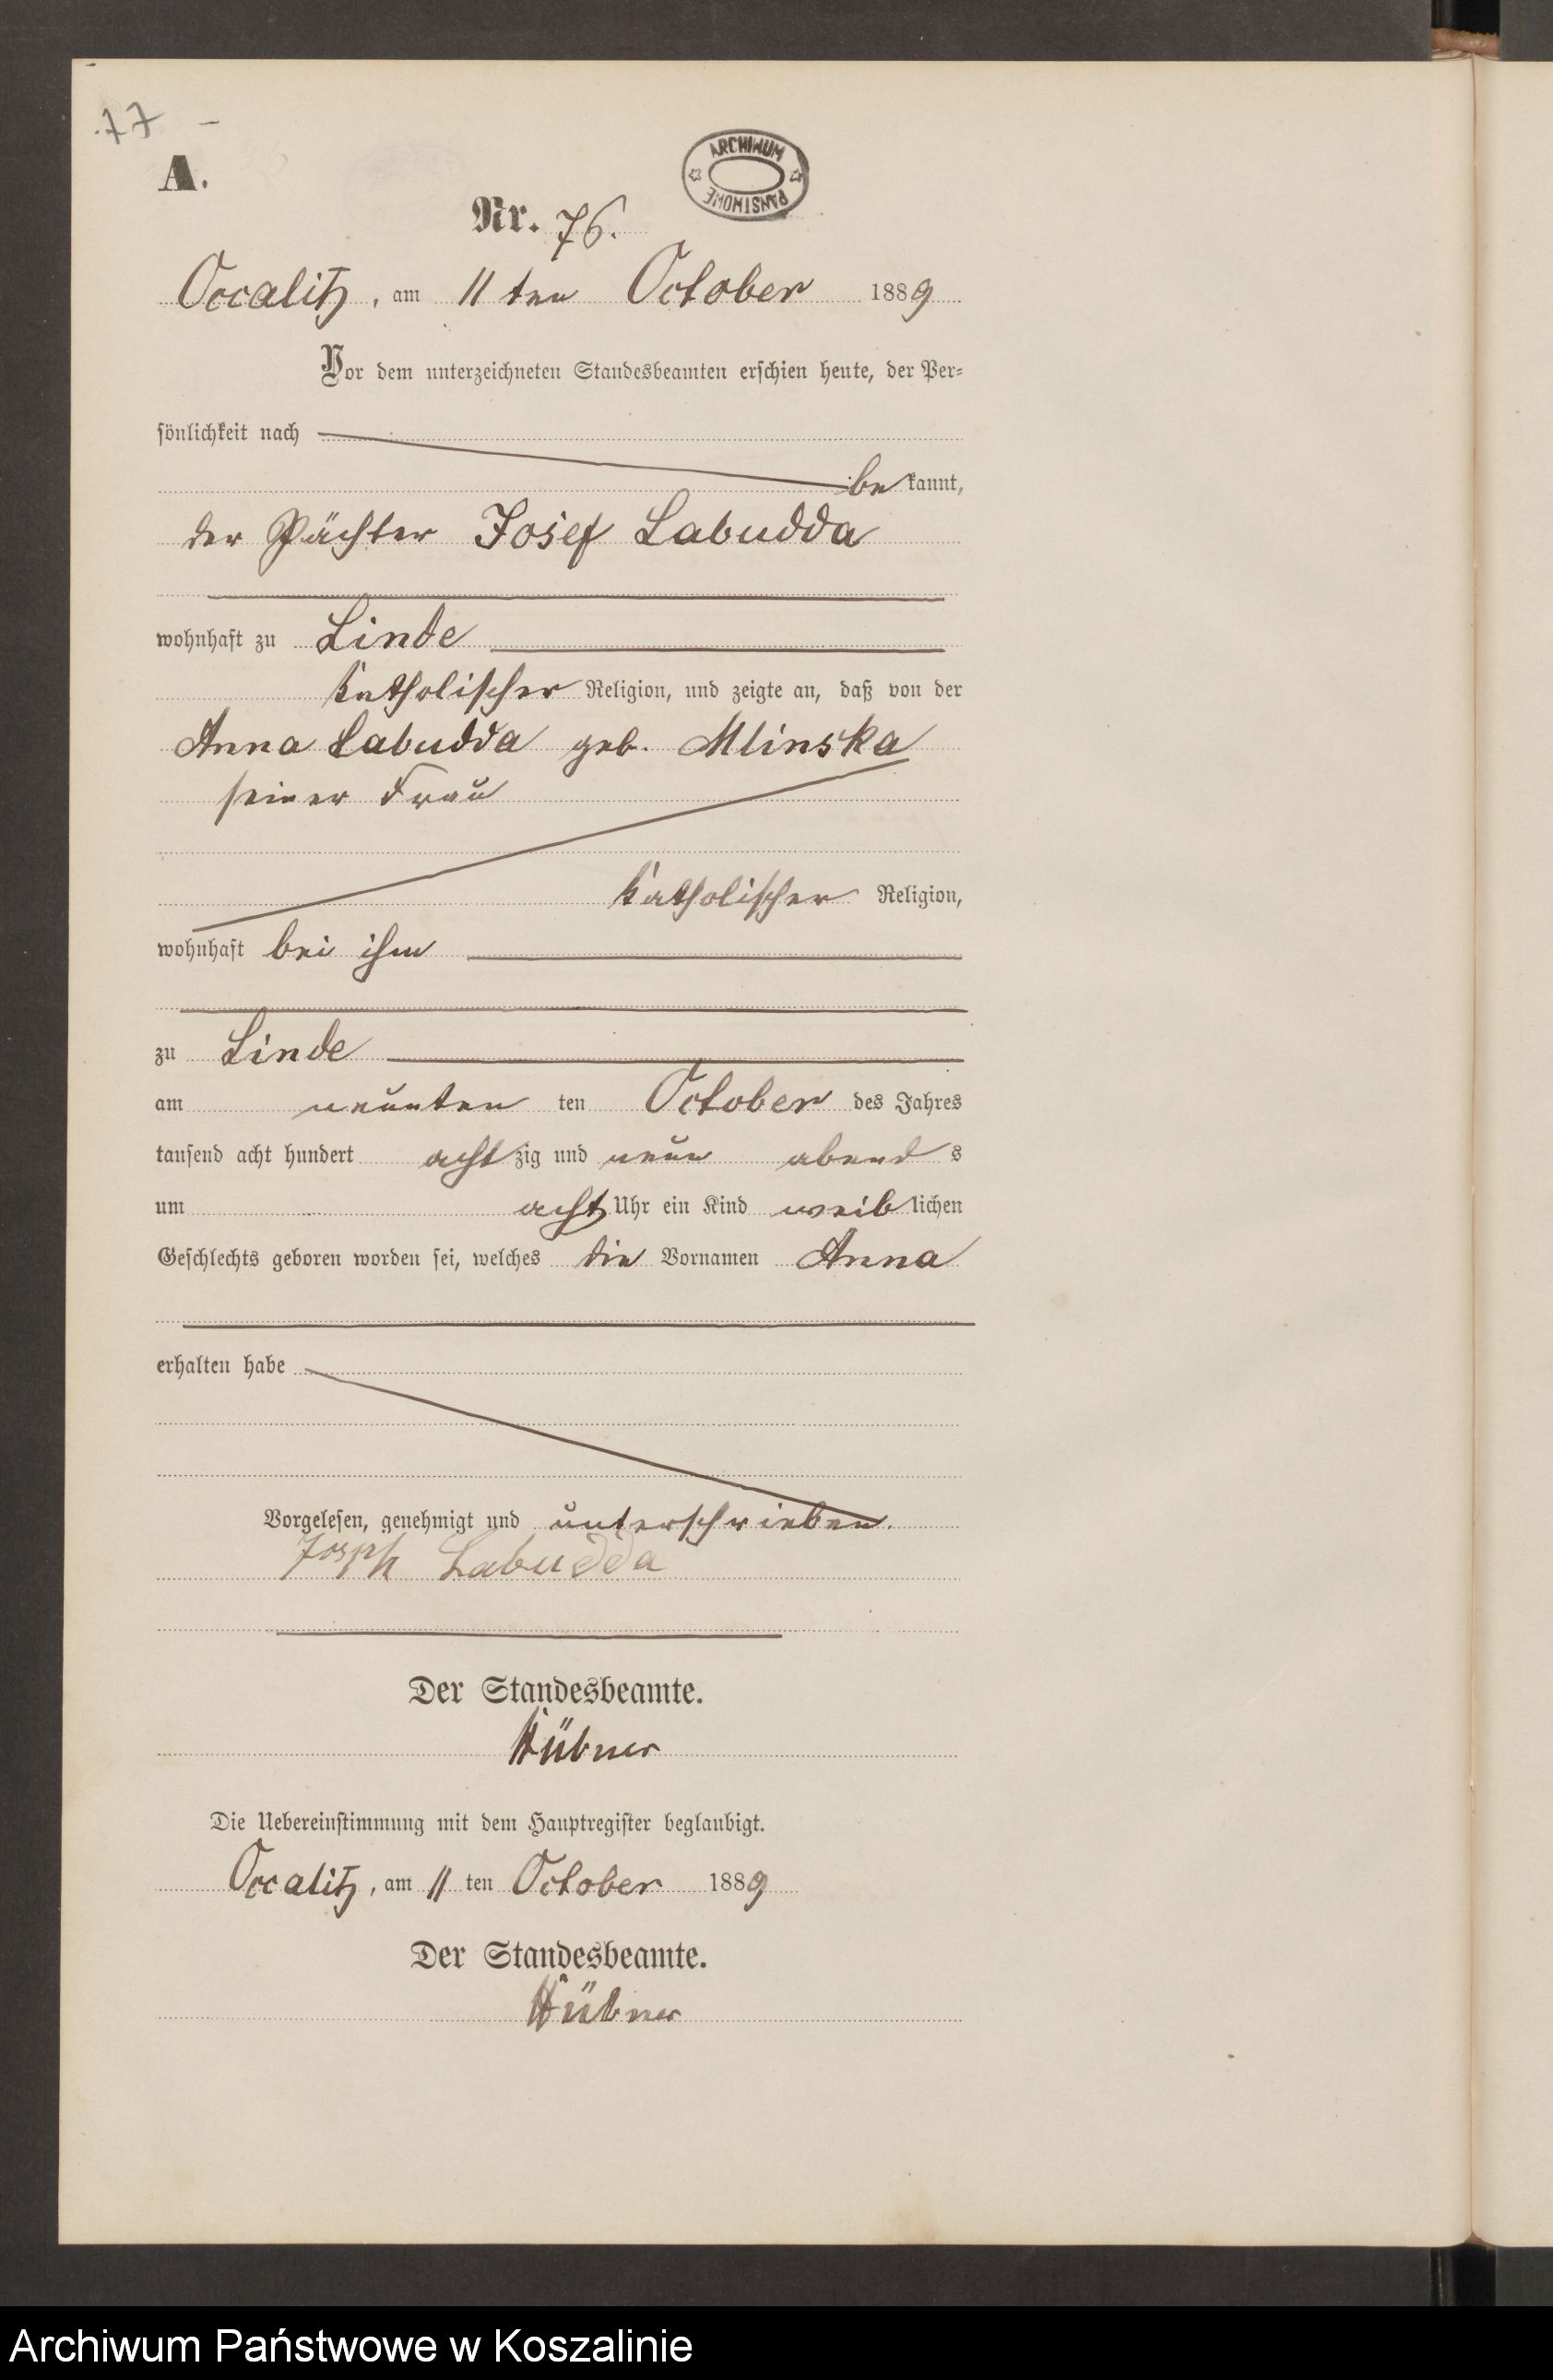 77 -
A.
ARCHIWUM
PAŃSTWOWE
Nr. 76.
Occalitz, am 11 ten October 1889
Vor dem unterzeichneten Standesbeamten erschien heute, der Per=
sönlichkeit nach
be kannt,
der Pächter Josef Labudda
wohnhaft zu Linde
katholischer Religion, und zeigte an, daß von der
Anna Labudda geb. Mlinska
seiner Frau
katholischer Religion,
wohnhaft bei ihm
zu Linde
am neunten ten October des Jahres
tausend acht hundert acht zig und neun abend s
um acht Uhr ein Kind weib lichen
Geschlechts geboren worden sei, welches die Vornamen Anna
erhalten habe
Vorgelesen, genehmigt und unterschrieben.
Joseph Labudda
Der Standesbeamte.
Hübner
Die Uebereinstimmung mit dem Hauptregister beglaubigt.
Occalitz, am 11 ten October 1889
Der Standesbeamte.
Hübner
Archiwum Państwowe w Koszalinie